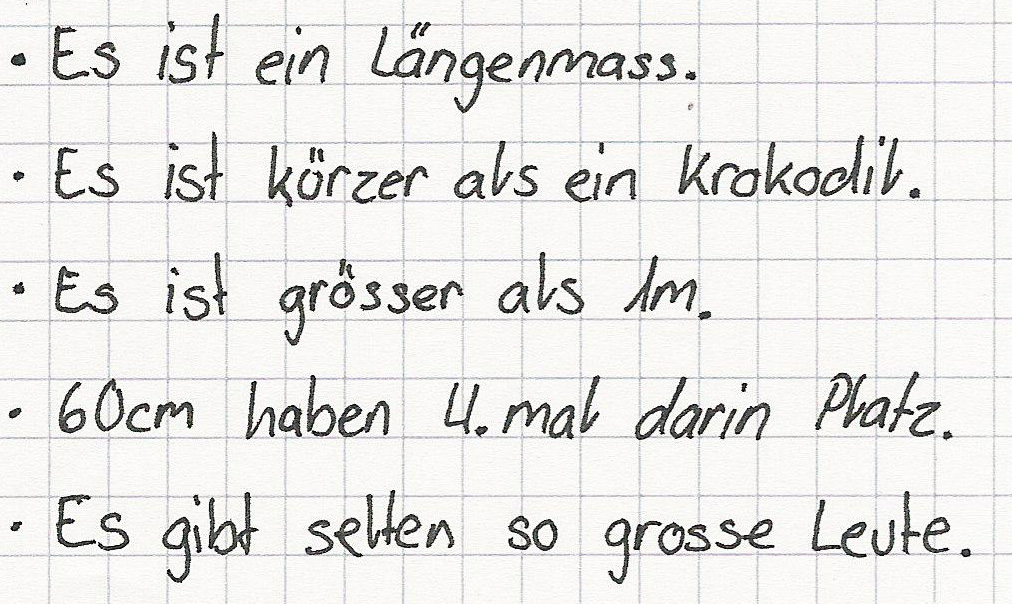 • Es ist ein Längenmass.
• Es ist körzer als ein Krokodil.
• Es ist grösser als 1m.
• 60cm haben 4.mal darin Platz.
• Es gibt selten so grosse Leute.